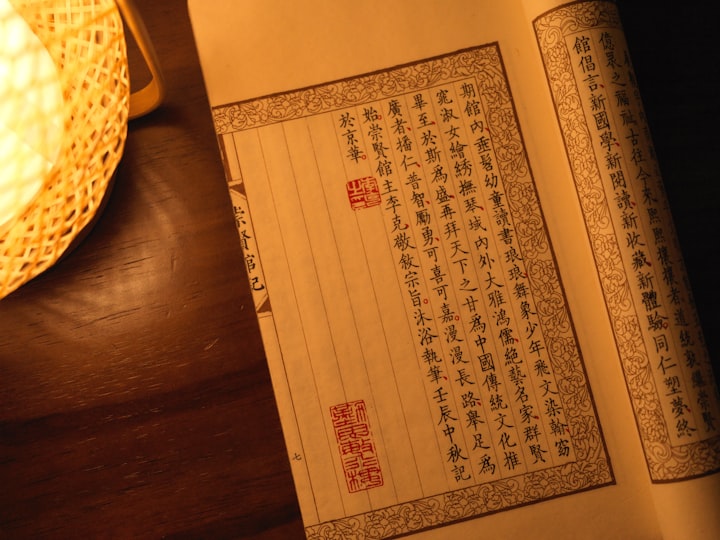 億眾之福祉古往今來熙熙攘攘
館倡言、新國學、新閱讀、新收藏、新體驗、同仁塑夢、終
期館內、垂髫幼童、讀書琅琅、舞象少年、飛文染翰、窈
窕淑女、繪綉撫琴、域內外大雅鴻儒、絕藝名家、群賢
畢至、於斯為盛、再拜天下之甘為中國傳統文化推
廣者、播仁、普智、勵勇、可喜可嘉。漫漫長路、舉足為
始。崇賢館主李克、敬敘宗旨。沐浴執筆、壬辰中秋記
於京華。
崇賢館記
七